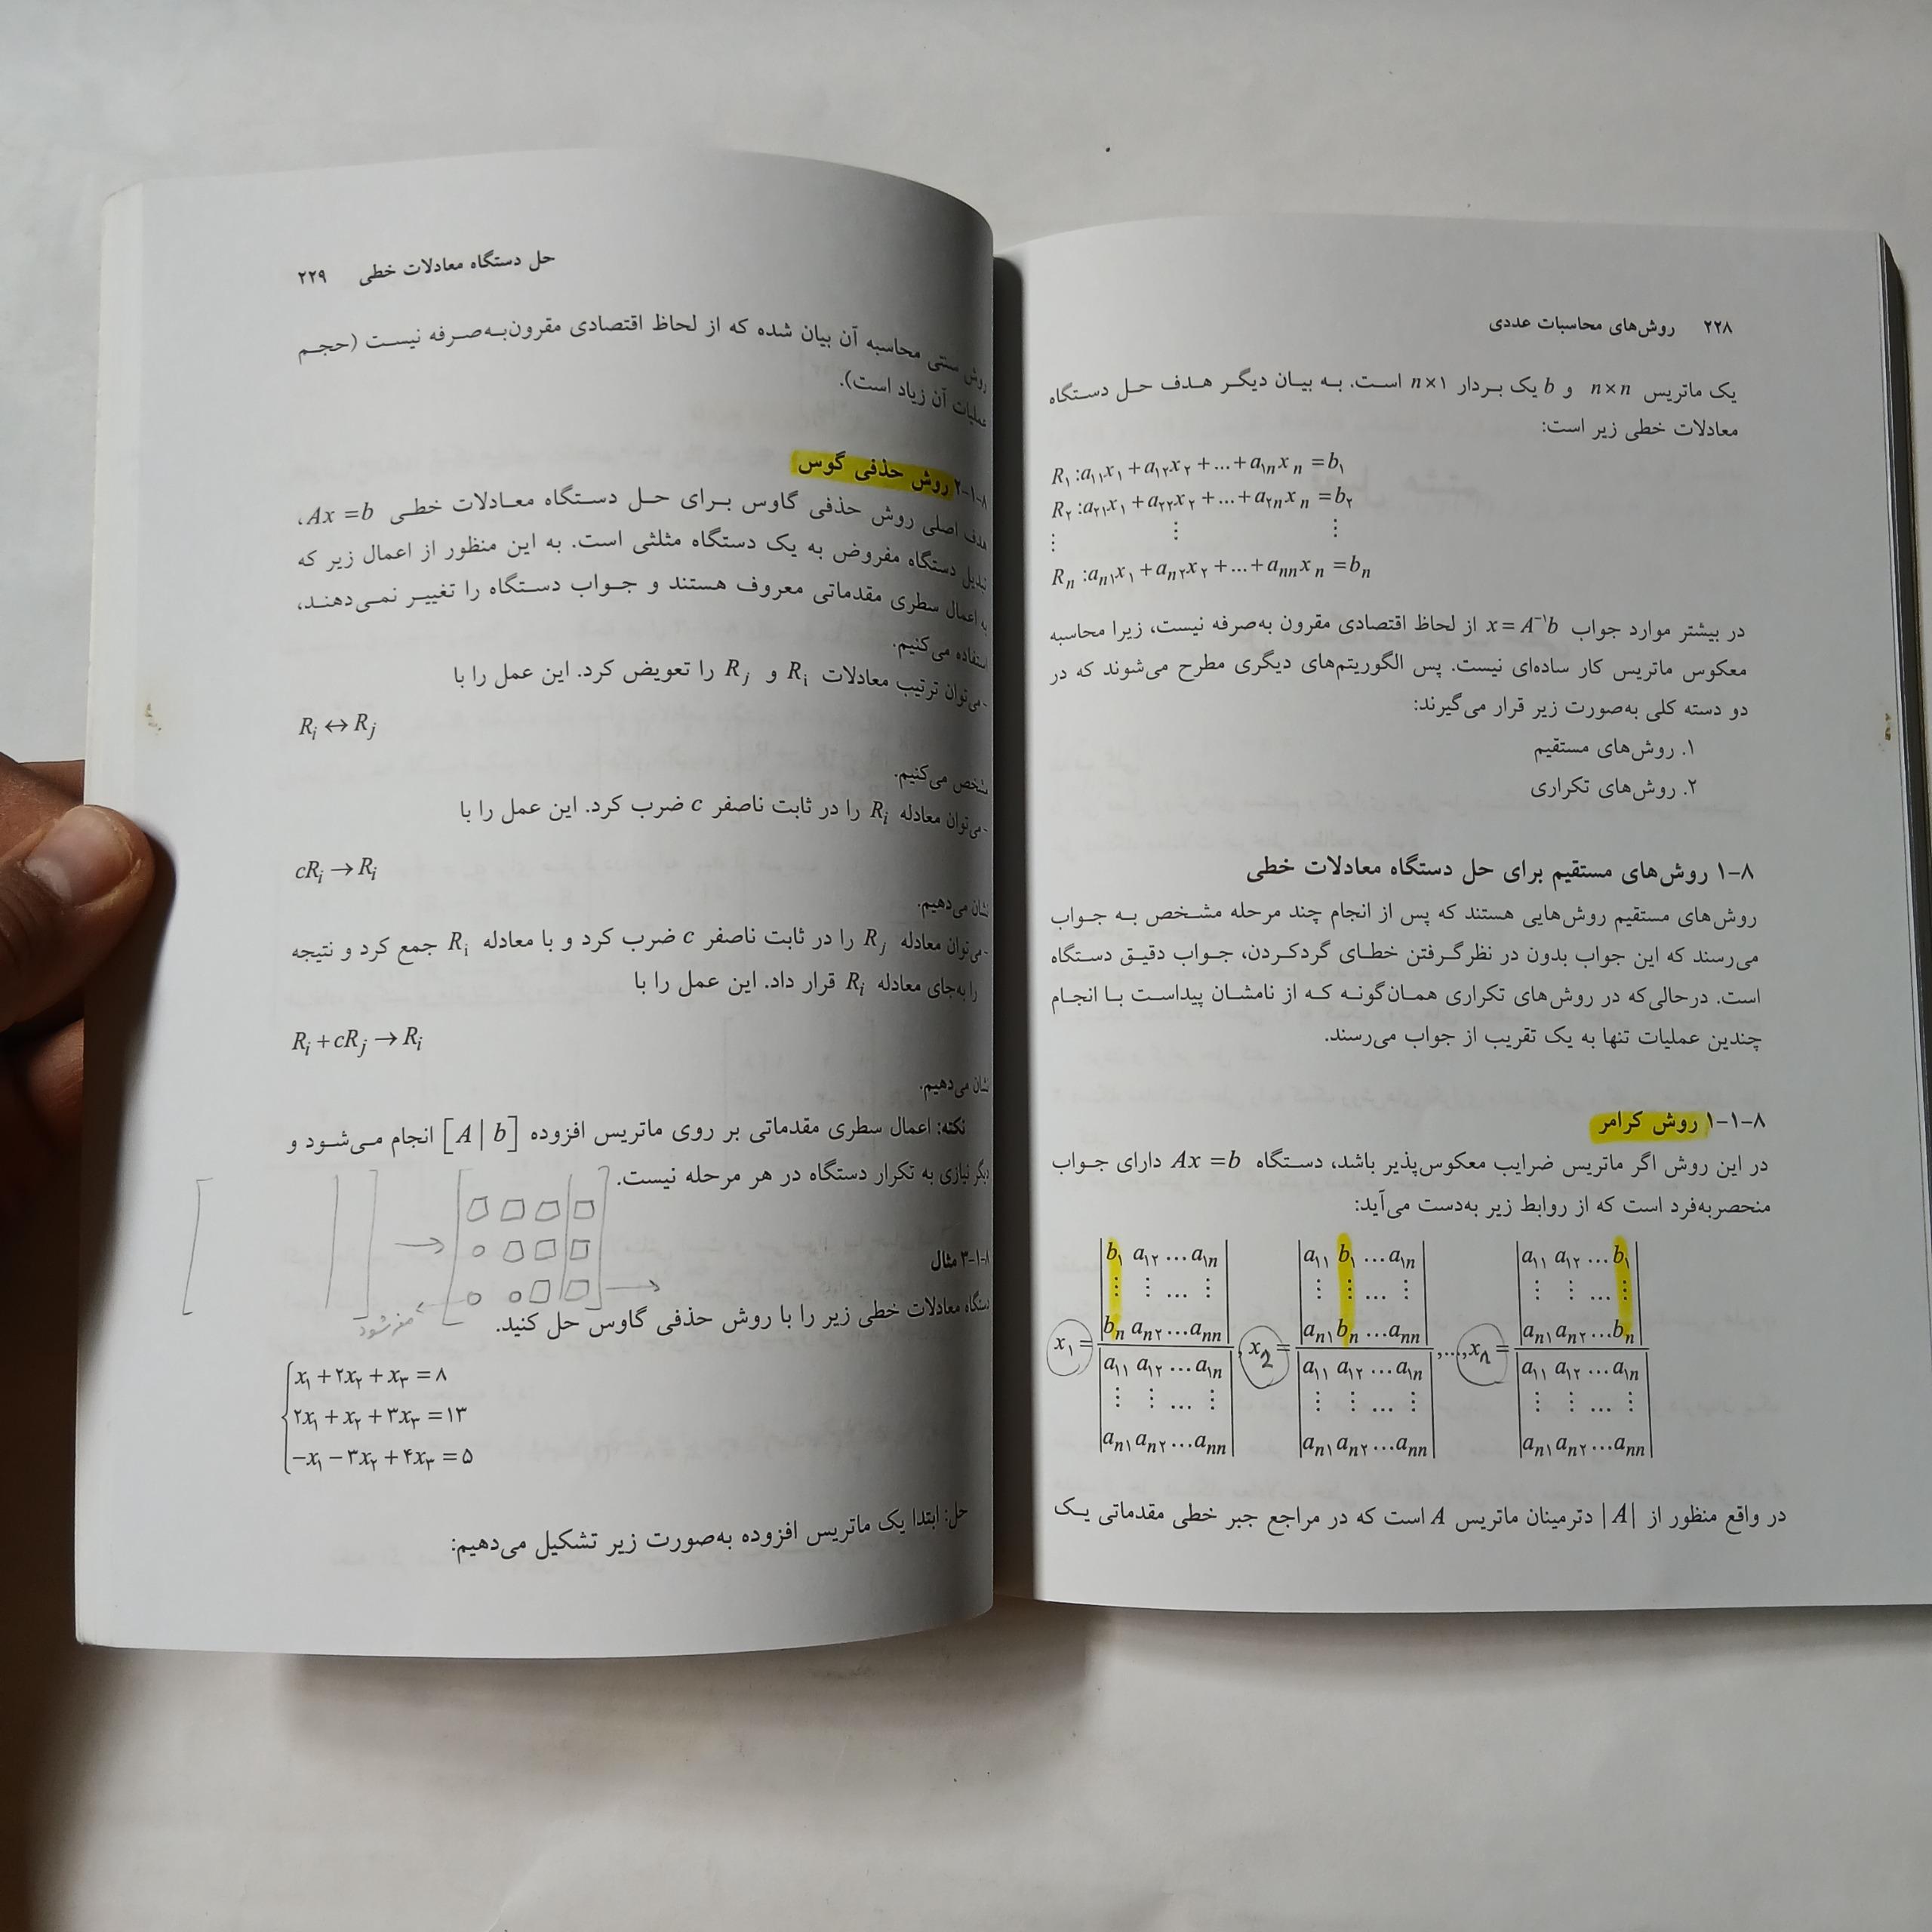 ۲۲۸ روش‌های محاسبات عددی
یک ماتریس n×n و b یک بردار n×۱ است. به بیان دیگر هدف حل دستگاه
معادلات خطی زیر است:
R₁ :a₁₁x₁ + a₁₂x₂ + ... + a₁ₙxₙ = b₁
R₂ :a₂₁x₁ + a₂₂x₂ + ... + a₂ₙxₙ = b₂
⋮ ⋮ ⋮
Rₙ :aₙ₁x₁ + aₙ₂x₂ + ... + aₙₙxₙ = bₙ
در بیشتر موارد جواب x = A⁻¹b از لحاظ اقتصادی مقرون به‌صرفه نیست، زیرا محاسبه
معکوس ماتریس کار ساده‌ای نیست. پس الگوریتم‌های دیگری مطرح می‌شوند که در
دو دسته کلی به‌صورت زیر قرار می‌گیرند:
۱. روش‌های مستقیم
۲. روش‌های تکراری
۸-۱ روش‌های مستقیم برای حل دستگاه معادلات خطی
روش‌های مستقیم روش‌هایی هستند که پس از انجام چند مرحله مشخص به جواب
می‌رسند که این جواب بدون در نظرگرفتن خطای گردکردن، جواب دقیق دستگاه
است. درحالی‌که در روش‌های تکراری همان‌گونه که از نامشان پیداست با انجام
چندین عملیات تنها به یک تقریب از جواب می‌رسند.
۸-۱-۱ روش کرامر
در این روش اگر ماتریس ضرایب معکوس‌پذیر باشد، دستگاه Ax = b دارای جواب
منحصربه‌فرد است که از روابط زیر به‌دست می‌آید:
|b₁ a₁₂ ... a₁ₙ| |a₁₁ b₁ ... a₁ₙ| |a₁₁ a₁₂ ... b₁|
|⋮ ⋮ ... ⋮| |⋮ ⋮ ... ⋮| |⋮ ⋮ ... ⋮|
|bₙ aₙ₂ ... aₙₙ| |aₙ₁ bₙ ... aₙₙ| |aₙ₁ aₙ₂ ... bₙ|
x₁ = , x₂ = , ..., xₙ =
|a₁₁ a₁₂ ... a₁ₙ| |a₁₁ a₁₂ ... a₁ₙ| |a₁₁ a₁₂ ... a₁ₙ|
|⋮ ⋮ ... ⋮| |⋮ ⋮ ... ⋮| |⋮ ⋮ ... ⋮|
|aₙ₁ aₙ₂ ... aₙₙ| |aₙ₁ aₙ₂ ... aₙₙ| |aₙ₁ aₙ₂ ... aₙₙ|
در واقع منظور از |A| دترمینان ماتریس A است که در مراجع جبر خطی مقدماتی یک
حل دستگاه معادلات خطی ۲۲۹
روش سنتی محاسبه آن بیان شده که از لحاظ اقتصادی مقرون‌به‌صرفه نیست (حجم
عملیات آن زیاد است).
۸-۱-۲ روش حذفی گوس
هدف اصلی روش حذفی گاوس برای حل دستگاه معادلات خطی Ax = b،
تبدیل دستگاه مفروض به یک دستگاه مثلثی است. به این منظور از اعمال زیر که
به اعمال سطری مقدماتی معروف هستند و جواب دستگاه را تغییر نمی‌دهند،
استفاده می‌کنیم.
-می‌توان ترتیب معادلات Rᵢ و Rⱼ را تعویض کرد. این عمل را با
Rᵢ ↔ Rⱼ
مشخص می‌کنیم.
-می‌توان معادله Rᵢ را در ثابت ناصفر c ضرب کرد. این عمل را با
cRᵢ → Rᵢ
نشان می‌دهیم.
-می‌توان معادله Rⱼ را در ثابت ناصفر c ضرب کرد و با معادله Rᵢ جمع کرد و نتیجه
را به‌جای معادله Rᵢ قرار داد. این عمل را با
Rᵢ + cRⱼ → Rᵢ
نشان می‌دهیم.
نکته: اعمال سطری مقدماتی بر روی ماتریس افزوده [A | b] انجام می‌شود و
دیگر نیازی به تکرار دستگاه در هر مرحله نیست.
صفر شود
۸-۱-۳ مثال
دستگاه معادلات خطی زیر را با روش حذفی گاوس حل کنید.
x₁ + ۲x₂ + x₃ = ۸
۲x₁ + x₂ + ۳x₃ = ۱۳
−x₁ − ۳x₂ + ۴x₃ = ۵
حل: ابتدا یک ماتریس افزوده به‌صورت زیر تشکیل می‌دهیم: